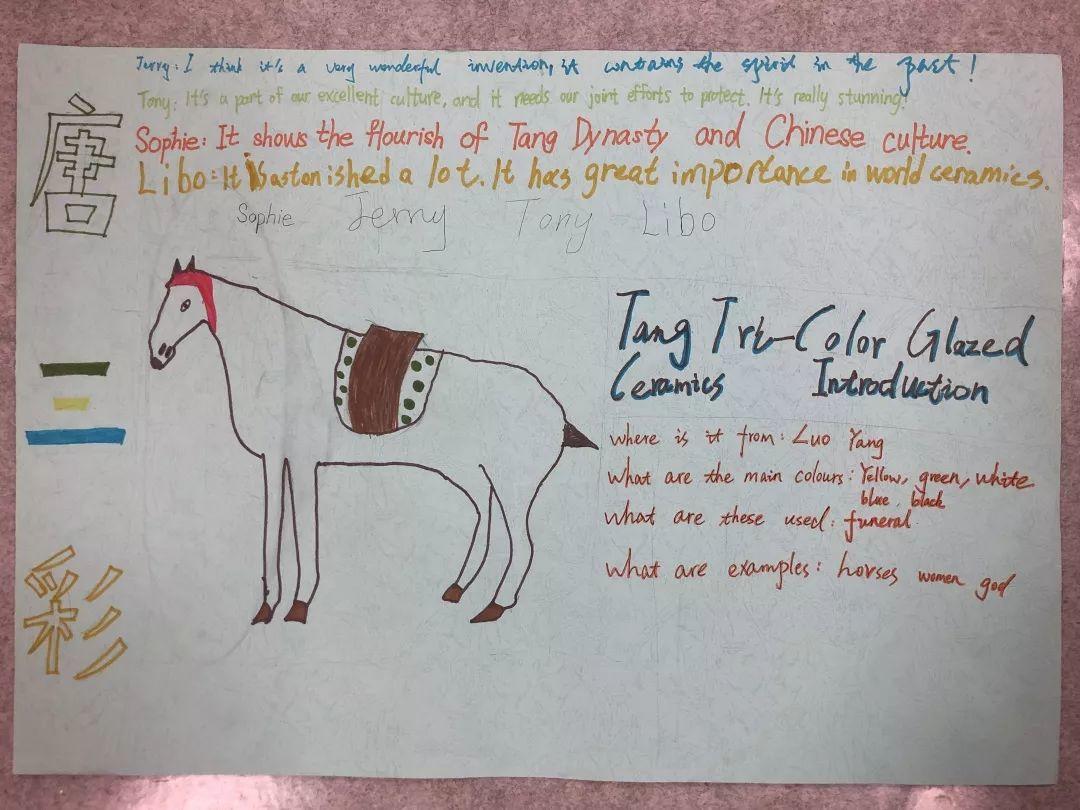 Jerry: I think it's a very wonderful invention, it contains the spirit in the past!
Tony: It's a part of our excellent culture, and it needs our joint efforts to protect. It's really stunning!
Sophie: It shows the flourish of Tang Dynasty and Chinese culture.
Libo: It is astonished a lot. It has great importance in world ceramics.
Sophie Jerry Tony Libo
唐
三
彩
Tang Tri-Color Glazed
Ceramics Introduction
where is it from: Luo Yang
What are the main colours: Yellow, green, white
blue, black
What are these used: funeral.
What are examples: horses women god